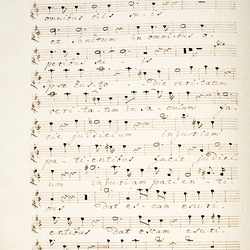 omnibus eis su-is
et sanctum in omnibus o-
peribus su - is
pte custo Dat veritatem
veritatem in sae culum sae-
cit judicium injuriam
pa - tientibus facit judici
um injuriam patien ti-
bus Dat escam esuri-
entibus dat escam esuri-